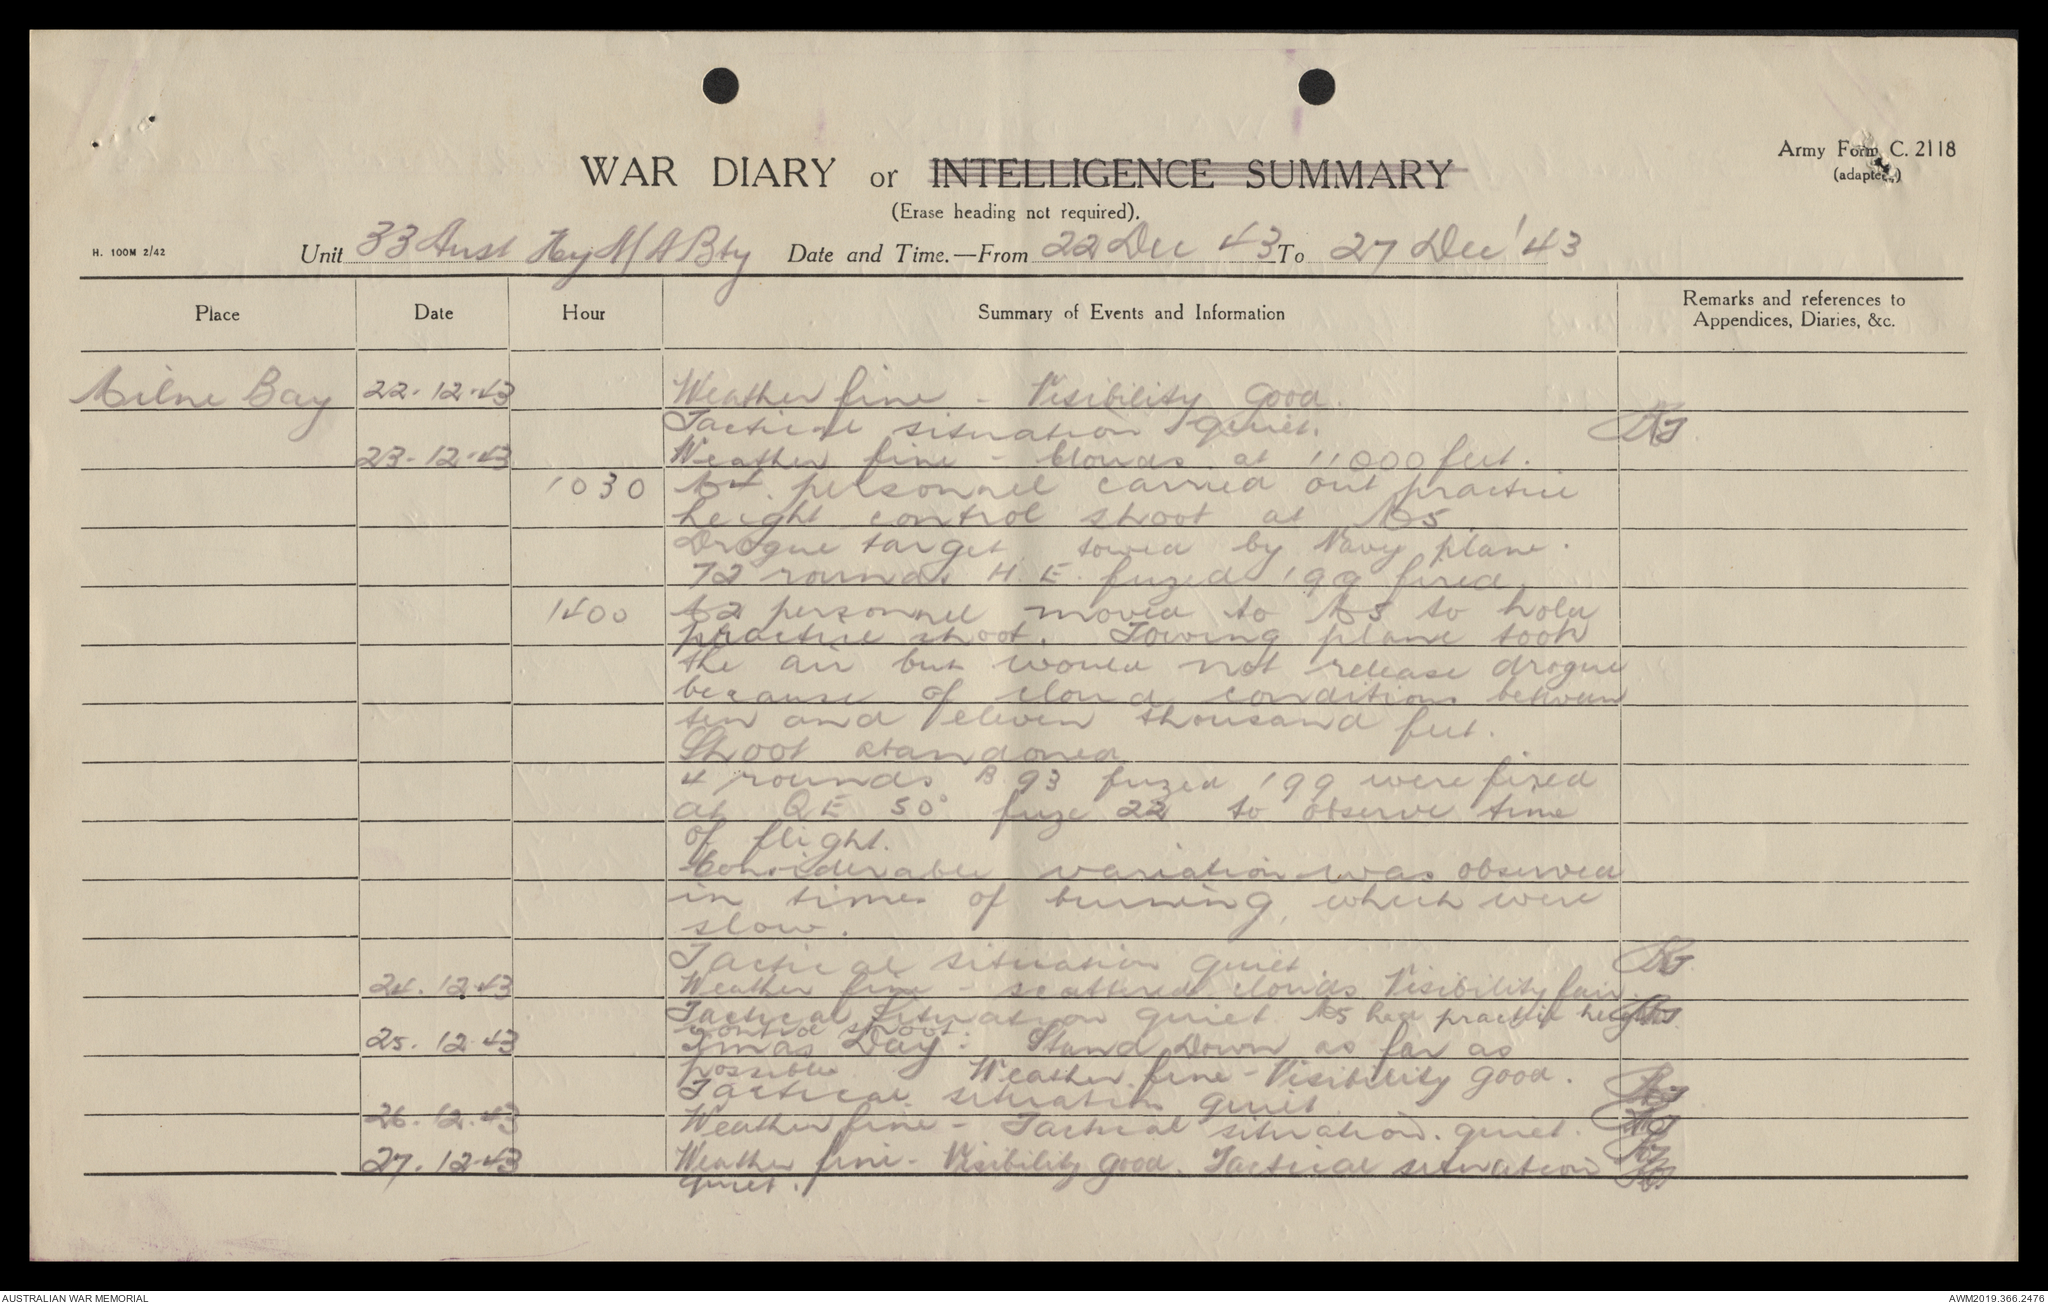 Army Form C. 2118
(adapted)
WAR DIARY or INTELLIGENCE SUMMARY
(Erase heading not required).
H. 100M 2/42
Unit 33 Aust Hy A/A Bty Date and Time.—From 22 Dec 43 To 27 Dec '43
Place Date Hour Summary of Events and Information Remarks and references to Appendices, Diaries, &c.
Milne Bay 22.12.43 Weather fine - Visibility good.
Tactical situation quiet.
23.12.43 Weather fine - Clouds at 11000 feet.
1030 personnel carried out practice
height control shoot at
Drogue target, towed by Navy plane.
72 rounds H.E. fuzed 199 fired.
1400 personnel moved to to hold
practise shoot. Towing plane took
the air but would not release drogue
because of cloud conditions between
ten and eleven thousand feet.
Shoot abandoned
4 rounds B.93 fuzed 199 were fired
at QE 50° fuze 22 to observe time
of flight.
Considerable variation was observed
in times of burning, which were
slow.
Tactical situation quiet
24.12.43 Weather fine - scattered clouds Visibility fair.
Tactical Situation quiet. practice height
control shoot.
25.12.43 Xmas Day: Stand Down as far as
possible Weather fine - Visibility good.
Tactical situation quiet
26.12.43 Weather fine - Tactical situation quiet.
27.12.43 Weather fine - Visibility good. Tactical situation
quiet.
AUSTRALIAN WAR MEMORIAL
AWM2019.366.2476